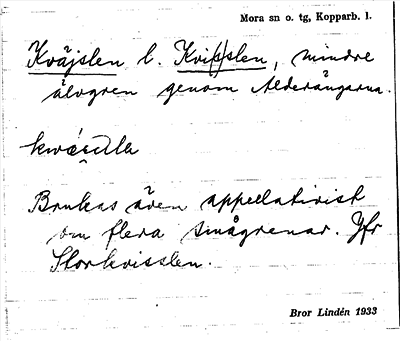 Mora sn o. tg, Kopparb. l.
Kväjslen l. Kvi(s)slen, mindre
älvgren genom Alderängarna.
Brukas även appellativiskt
om flera smågrenar. Jfr
Storkvisslen.
Bror Lindén 1933